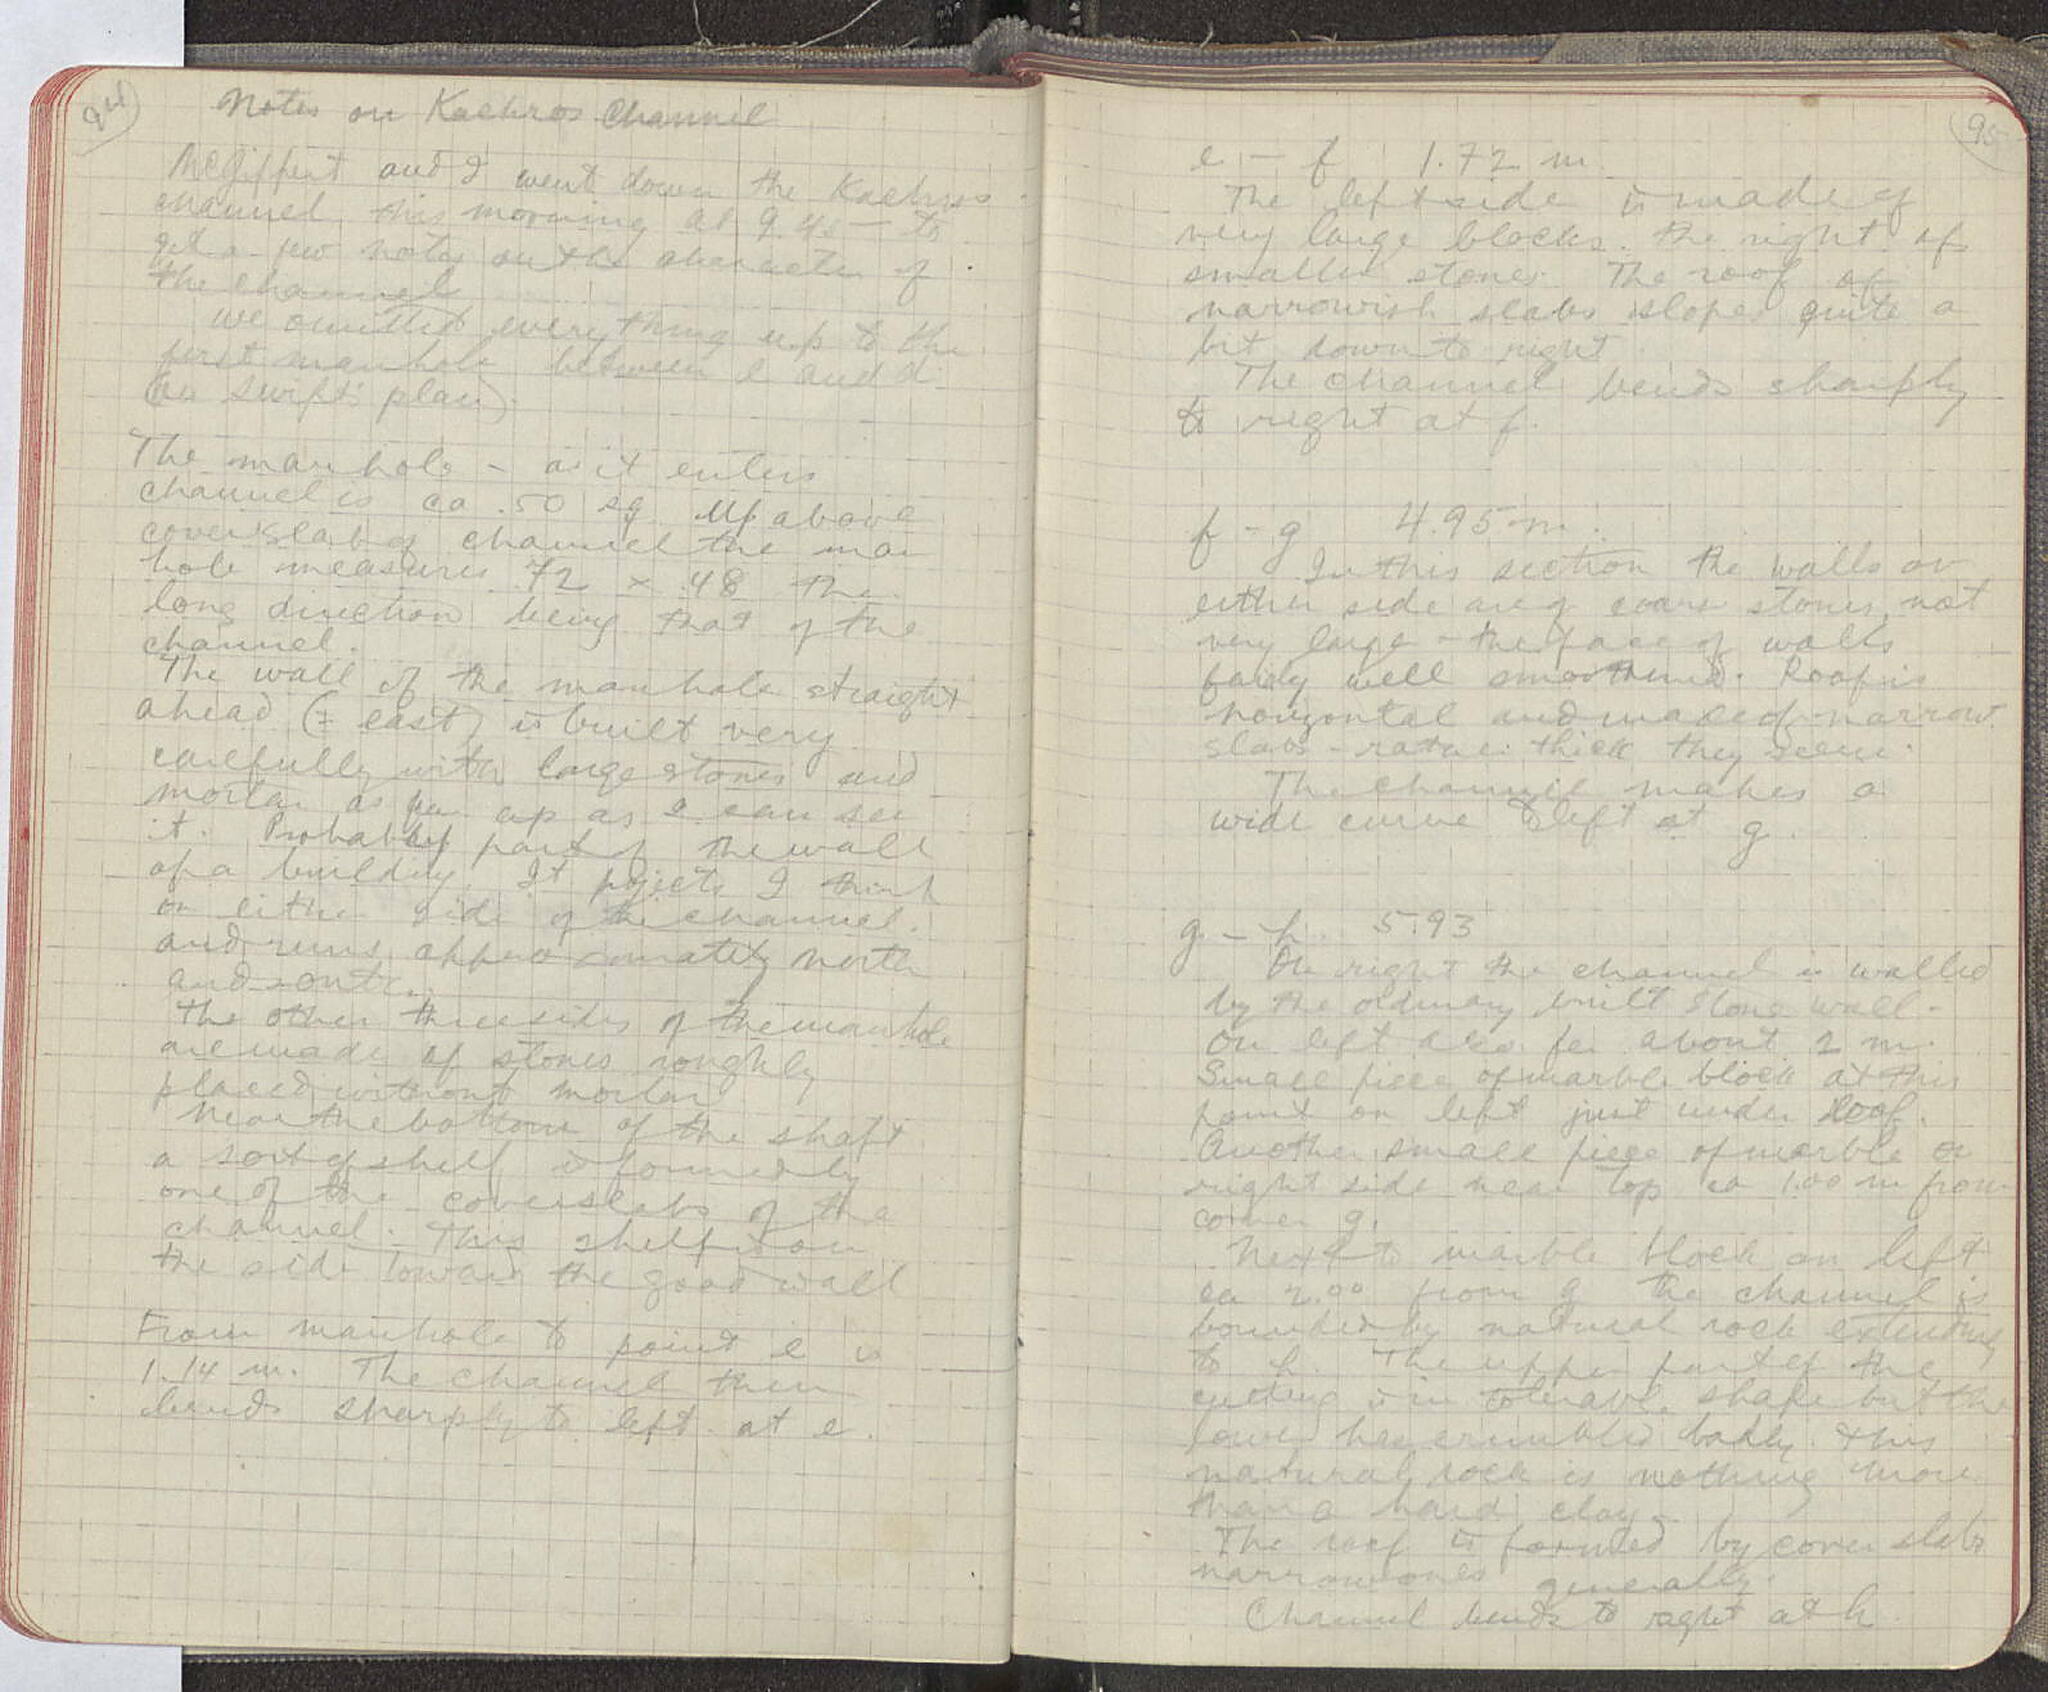 94
Notes on Kachros Channel
McGiffert and I went down the Kachros
channel this morning at 9.45 — to
get a few notes on the character of
the channel
We omitted everything up to the
first manhole between e and d
(on Swift's plan).
The manhole – as it enters
channel is ca .50 sq. Up above
coverslab of channel the man
hole measures .72 × .48 the
long direction being that of the
channel.
The wall of the manhole straight
ahead (± east) is built very
carefully with large stones and
mortar as far up as I can see
it. Probably part of the wall
of a building. It projects I think
on either side of the channel.
and runs approximately north
and south.
The other three sides of the manhole
are made of stones roughly
placed without mortar
Near the bottom of the shaft
a sort of shelf is formed by
one of the coverslabs of the
channel. This shelf is on
the side toward the good wall
From manhole to point e is
1.14 m. The channel then
bends sharply to left at e.
95
e – f 1.72 m
The left side is made of
very large blocks. the right of
smaller stones. The roof of
narrowish slabs slopes quite a
bit down to right
The channel bends sharply
to right at f.
f – g 4.95 m.
In this section the walls on
either side are of coarse stones, not
very large – the face of walls
fairly well smoothened. Roof is
horizontal and made of narrow
slabs – rather thick they seem.
The channel makes a
wide curve to left at g.
g – h. 5.93
On right the channel is walled
by the ordinary built stone wall –
On left also for about 2 m.
Small piece of marble block at this
point on left just under roof.
Another small piece of marble on
right side near top ca 1.00 m from
corner g.
Next to marble block on left
ca 2.00 from g the channel is
bounded by natural rock extending
to h. The upper part of the
cutting is in tolerable shape but the
lower has crumbled badly. This
natural rock is nothing more
than a hard clay
The roof is formed by cover slabs
narrow ones generally.
Channel bends to right at h